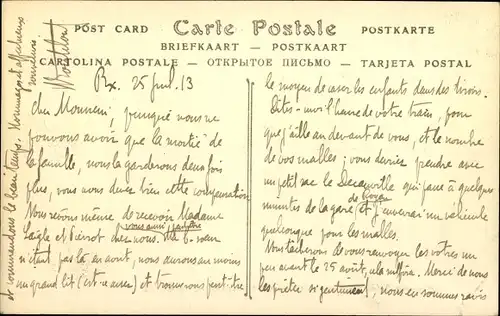 POST CARD Carte Postale POSTKARTE
BRIEFKAART — POSTKAART
CARTOLINA POSTALE — ОТКРЫТОЕ ПИСЬМО — TARJETA POSTAL
25 juil. 13
Cher Monsieur, puisque nous ne
pouvons avoir que la moitié de
la famille, nous la garderons deux fois
plus, vous nous devez bien cette compensation
Nous rêvions même de recevoir Madame
vous aussi peut-être
Laigle et Pierrot chez nous. Ma b-sœur
n'étant pas là en août, nous aurons au moins
un grand lit et trouverons peut-être
le moyen de caser les enfants dans des tiroirs.
Dites-moi l'heure de votre train, pour
que j'aille au devant de vous, et le nombre
de vos malles; vous devriez prendre avec
un petit sac le Decauville qui passe à quelques
de Royan
minutes de la gare et j'enverrai un véhicule
quelconque pour les malles.
Nous tâcherons de vous renvoyer les vôtres un
peu avant le 25 août, cela suffira. Merci de nous
les prêter si gentiment, nous en sommes ravis
et commandons le beau temps. Hommages et affectueux
souvenirs